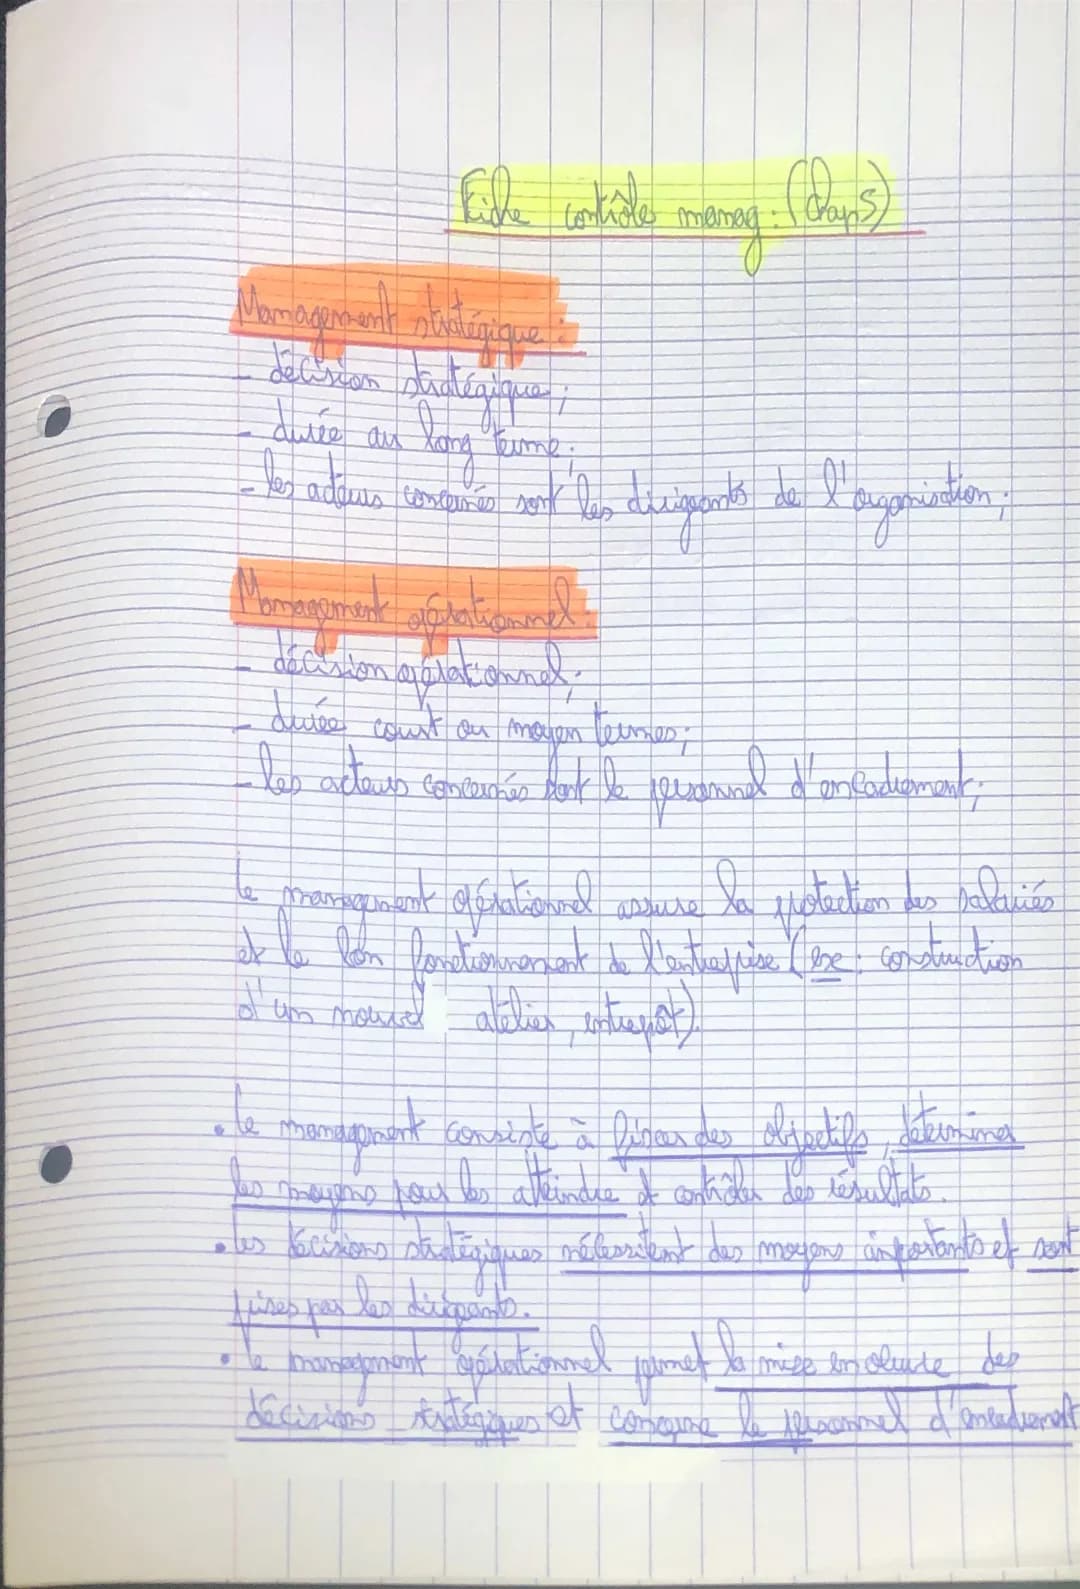 Fiche contrôle manag. (chap5)
Management stratégique :
- décision stratégique ;
- durée au long terme ;
- les acteurs concernés sont les dirigeants de l'organisation ;
Management opérationnel :
- décision opérationnel ;
- durée court ou moyen termes ;
- les acteurs concernés sont le personnel d'encadrement ;
Le management opérationnel assure la protection des salariés
et le bon fonctionnement de l'entreprise (ex : construction
d'un nouvel atelier, entrepôt).
• Le management consiste à fixer des objectifs, déterminer
les moyens pour les atteindre et contrôler des résultats.
• Les décisions stratégiques nécessitent des moyens importants et sont
prises par les dirigeants.
• Le management opérationnel permet la mise en œuvre des
décisions stratégiques et concerne le personnel d'encadrement